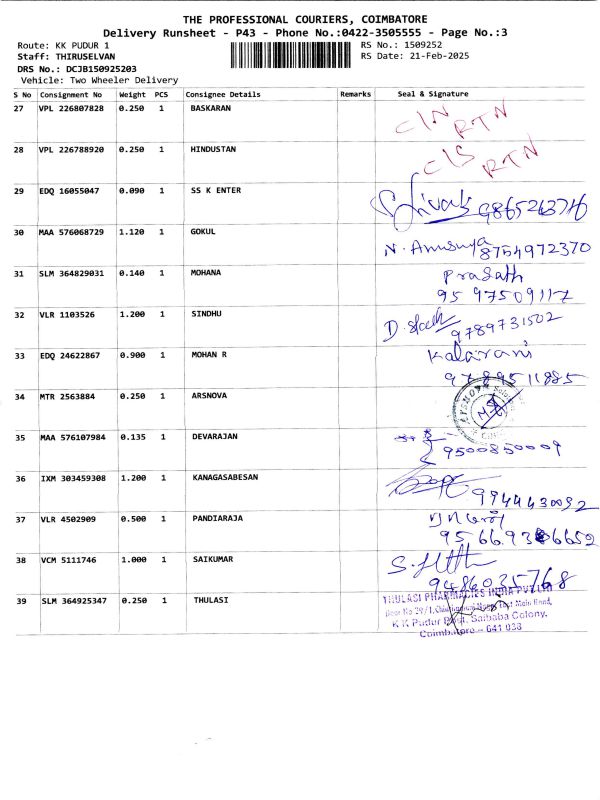 THE PROFESSIONAL COURIERS, COIMBATORE
Delivery Runsheet - P43 - Phone No.:0422-3505555 - Page No.:3
Route: KK PUDUR 1 RS No.: 1509252
Staff: THIRUSELVAN RS Date: 21-Feb-2025
DRS No.: DCJB150925203
Vehicle: Two Wheeler Delivery
S No Consignment No Weight PCS Consignee Details Remarks Seal & Signature
27 VPL 226807828 0.250 1 BASKARAN C/N RTN
28 VPL 226788920 0.250 1 HINDUSTAN C/S RTN
29 EDQ 16055047 0.090 1 SS K ENTER
30 MAA 576068729 1.120 1 GOKUL N. Anusuya 8754972370
31 SLM 364829031 0.140 1 MOHANA Prasath
95 97509117
32 VLR 1103526 1.200 1 SINDHU D. 9789731502
33 EDQ 24622867 0.900 1 MOHAN R Kalairani
9789511885
34 MTR 2563884 0.250 1 ARSNOVA
35 MAA 576107984 0.135 1 DEVARAJAN 9500850009
36 IXM 303459308 1.200 1 KANAGASABESAN 9944430092
37 VLR 4502909 0.500 1 PANDIARAJA
38 VCM 5111746 1.000 1 SAIKUMAR
9486035768
39 SLM 364925347 0.250 1 THULASI THULASI PHARMACIES INDIA PVT LTD
K K Pudur Post, Saibaba Colony,
Coimbatore - 641 038